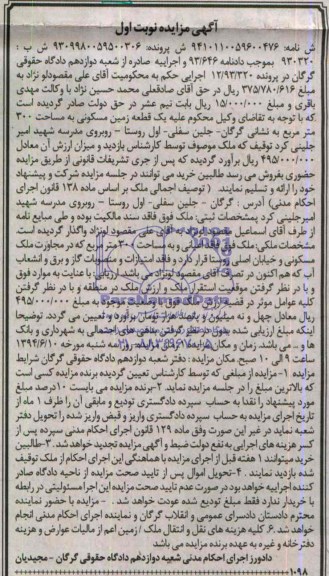 آگهی مزایده نوبت اول
ش نامه: ۹۴۱۰۱۱۰۰۵۹۶۰۰۴۷۶ ش پرونده: ۹۳۰۹۹۸۰۰۵۹۵۰۰۳۰۶ ش ب :
۹۳۰۳۲۰ بموجب دادنامه ۹۳/۶۴۶ و اجراییه صادره از شعبه دوازدهم دادگاه حقوقی
گرگان در پرونده ۱۲/۹۳/۳۲۰ اجرایی حکم به محکومیت آقای علی مقصودلو نژاد به
مبلغ ۳۷۵/۷۸۰/۶۱۶ ریال در حق آقای صادقعلی محمد حسین نژاد با وکالت مهدی
باقری و مبلغ ۱۵/۰۰۰/۰۰۰ ریال بابت نیم عشر در حق دولت صادر گردیده است
که با توجه به تقاضای وکیل محکوم علیه یک قطعه زمین مسکونی به مساحت ۳۰۰
متر مربع به نشانی گرگان- جلین سفلی- اول روستا - روبروی مدرسه شهید امیر
جلینی کرد توقیف که ملک موصوف توسط کارشناس بازدید و میزان ارزش آن معادل
۴۹۵/۰۰۰/۰۰۰ ریال برآورد گردیده که پس از جری تشریفات قانونی از طریق مزایده
حضوری بفروش می رسد طالبین خرید می توانند در جلسه مزایده شرکت و پیشنهاد
خود را ارائه و تسلیم نمایند. ( توصیف اجمالی ملک بر اساس ماده ۱۳۸ قانون اجرای
احکام مدنی) آدرس : گرگان - جلین سفلی- اول روستا - روبروی مدرسه شهید
امیرجلینی کرد پمشخصات ثبتی: ملک فوق فاقد سند مالکیت بوده و طی مبایع نامه
از طرف آقای اسماعیل به آقای علی مقصود لونژاد واگذار گردیده است.
مشخصات ملکی: ملک فوق به مساحت ۳۰۰ متر مربع که در مجاورت ملک
مسکونی و خیابان اصلی قرار دارد و فاقد امتیازات و گاز و برق و انشعاب
آب که هم اکنون در تصرف آقای مقصود لونژاد می باشد. ارزیابی: با عنایت به موارد فوق
و با در نظر گرفتن موقعیت استقرار ملک و ارزش ملک در منطقه و با در نظر گرفتن
کلیه عوامل موثر در قضیه به مبلغ ۴۹۵/۰۰۰/۰۰۰
ریال معادل چهل و نه میلیون و پانصد هزار تومان برآورد و تعیین می گردد. توضیحا
اینکه مبلغ ارزیابی شده بدون در نظر گرفتن بدهی های احتمالی به شهرداری و بانک
می باشد. زمان و مکان شنبه مورخه ۱۳۹۴/۶/۱۰
ساعت ۹ الی ۱۰ صبح مکان مزایده: دفتر شعبه دوازدهم دادگاه حقوقی گرگان شرایط
مزایده ۱- مزایده از مبلغی که توسط کارشناس تعیین گردیده برنده مزایده کسی است
که بالاترین مبلغ را در جلسه مزایده نماید. ۲-برنده مزایده می بایست ۱۰درصد مبلغ
مورد پیشنهاد را نقدا به حساب سپرده دادگستری تودیع و مابقی آن را ظرف ۱ ماه از
تاریخ اجرای مزایده به حساب سپرده دادگستری واریز و قبض واریز شده را تحویل دفتر
شعبه نماید در غیر این صورت وفق ماده ۱۲۹ قانون اجرای احکام مدنی سپرده پس از
کسر هزینه های اجرایی به نفع دولت ضبط و آگهی مزایده تجدید خواهد شد. ۳-طالبین
خرید میتوانند ۱ هفته قبل از اجرای مزایده با هماهنگی این اجرای احکام از ملک توقیف
شده بازدید نمایند. ۴-تحویل اموال پس از تایید صحت مزایده از ناحیه دادگاه صادر
کننده اجراییه خواهد بود در صورت عدم تایید صحت مزایده این اجرا مسئولیتی در رابطه
با خریدار ندارد فقط مبلغ تودیع شده عودت خواهد شد . ۵- مزایده با حضور نماینده
محترم دادستان دادسرای عمومی و انقلاب گرگان و نماینده اجرای احکام مدنی انجام
خواهد شد. ۶- کلیه هزینه های نقل و انتقال ملک /زمین اعم از مالیات عوارض و هزینه
دفترخانه و غیره به عهده برنده مزایده می باشد
دادورز اجرای احکام مدنی شعبه دوازدهم دادگاه حقوقی گرگان - مجیدیان
۱۰۹۸
ParsNamadData